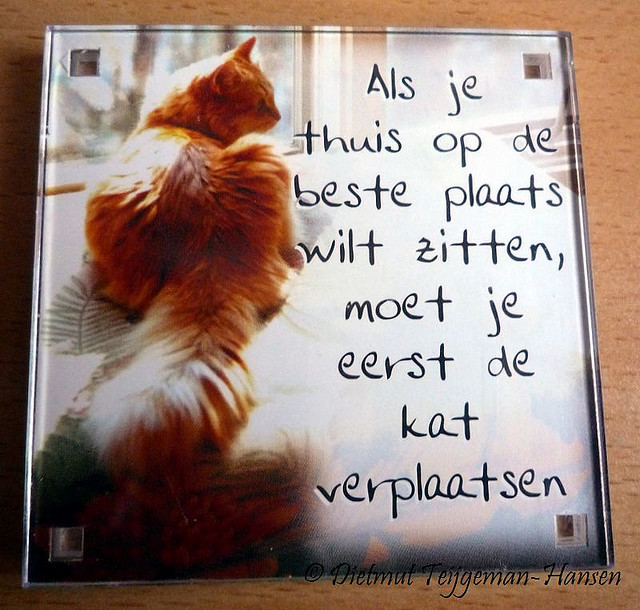 Als je
thuis op de
beste plaats
wilt zitten,
moet je
eerst de
kat
verplaatsen
© Dietmut Teijgeman-Hansen